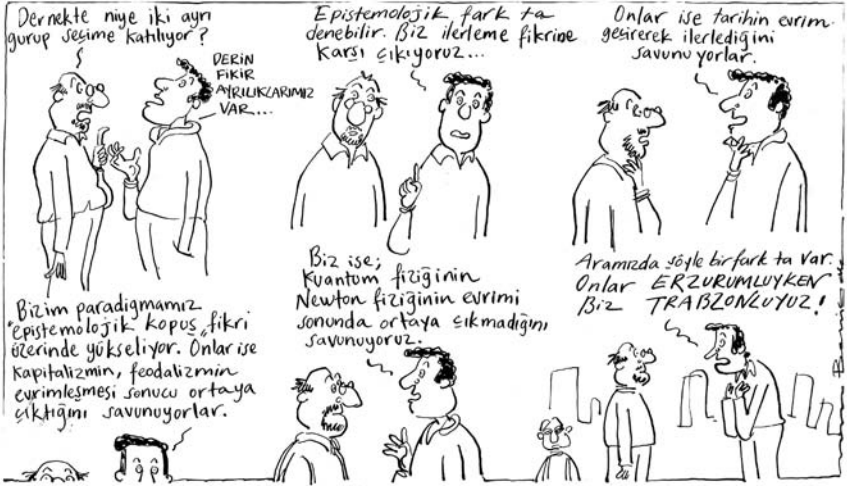 Dernekte niye iki ayrı
gurup seçime katılıyor?
DERİN
FİKİR
AYRILIKLARIMIZ
VAR...
Epistemolojik fark ta
denebilir. Biz ilerleme fikrine
karşı çıkıyoruz...
Onlar ise tarihin evrim
geçirerek ilerlediğini
savunuyorlar.
Bizim paradigmamız
"epistemolojik kopuş" fikri
üzerinde yükseliyor. Onlar ise
kapitalizmin, feodalizmin
evrimleşmesi sonucu ortaya
çıktığını savunuyorlar.
Biz ise;
Kuantum fiziğinin
Newton fiziğinin evrimi
sonunda ortaya çıkmadığını
savunuyoruz.
Aramızda şöyle bir fark ta var.
Onlar ERZURUMLUYKEN
Biz TRABZONLUYUZ!